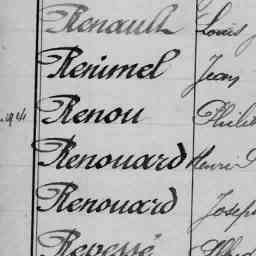 Renault Louis
Renimel Jean
Renou
Renouard Henri
Renouard Joseph
Repessé